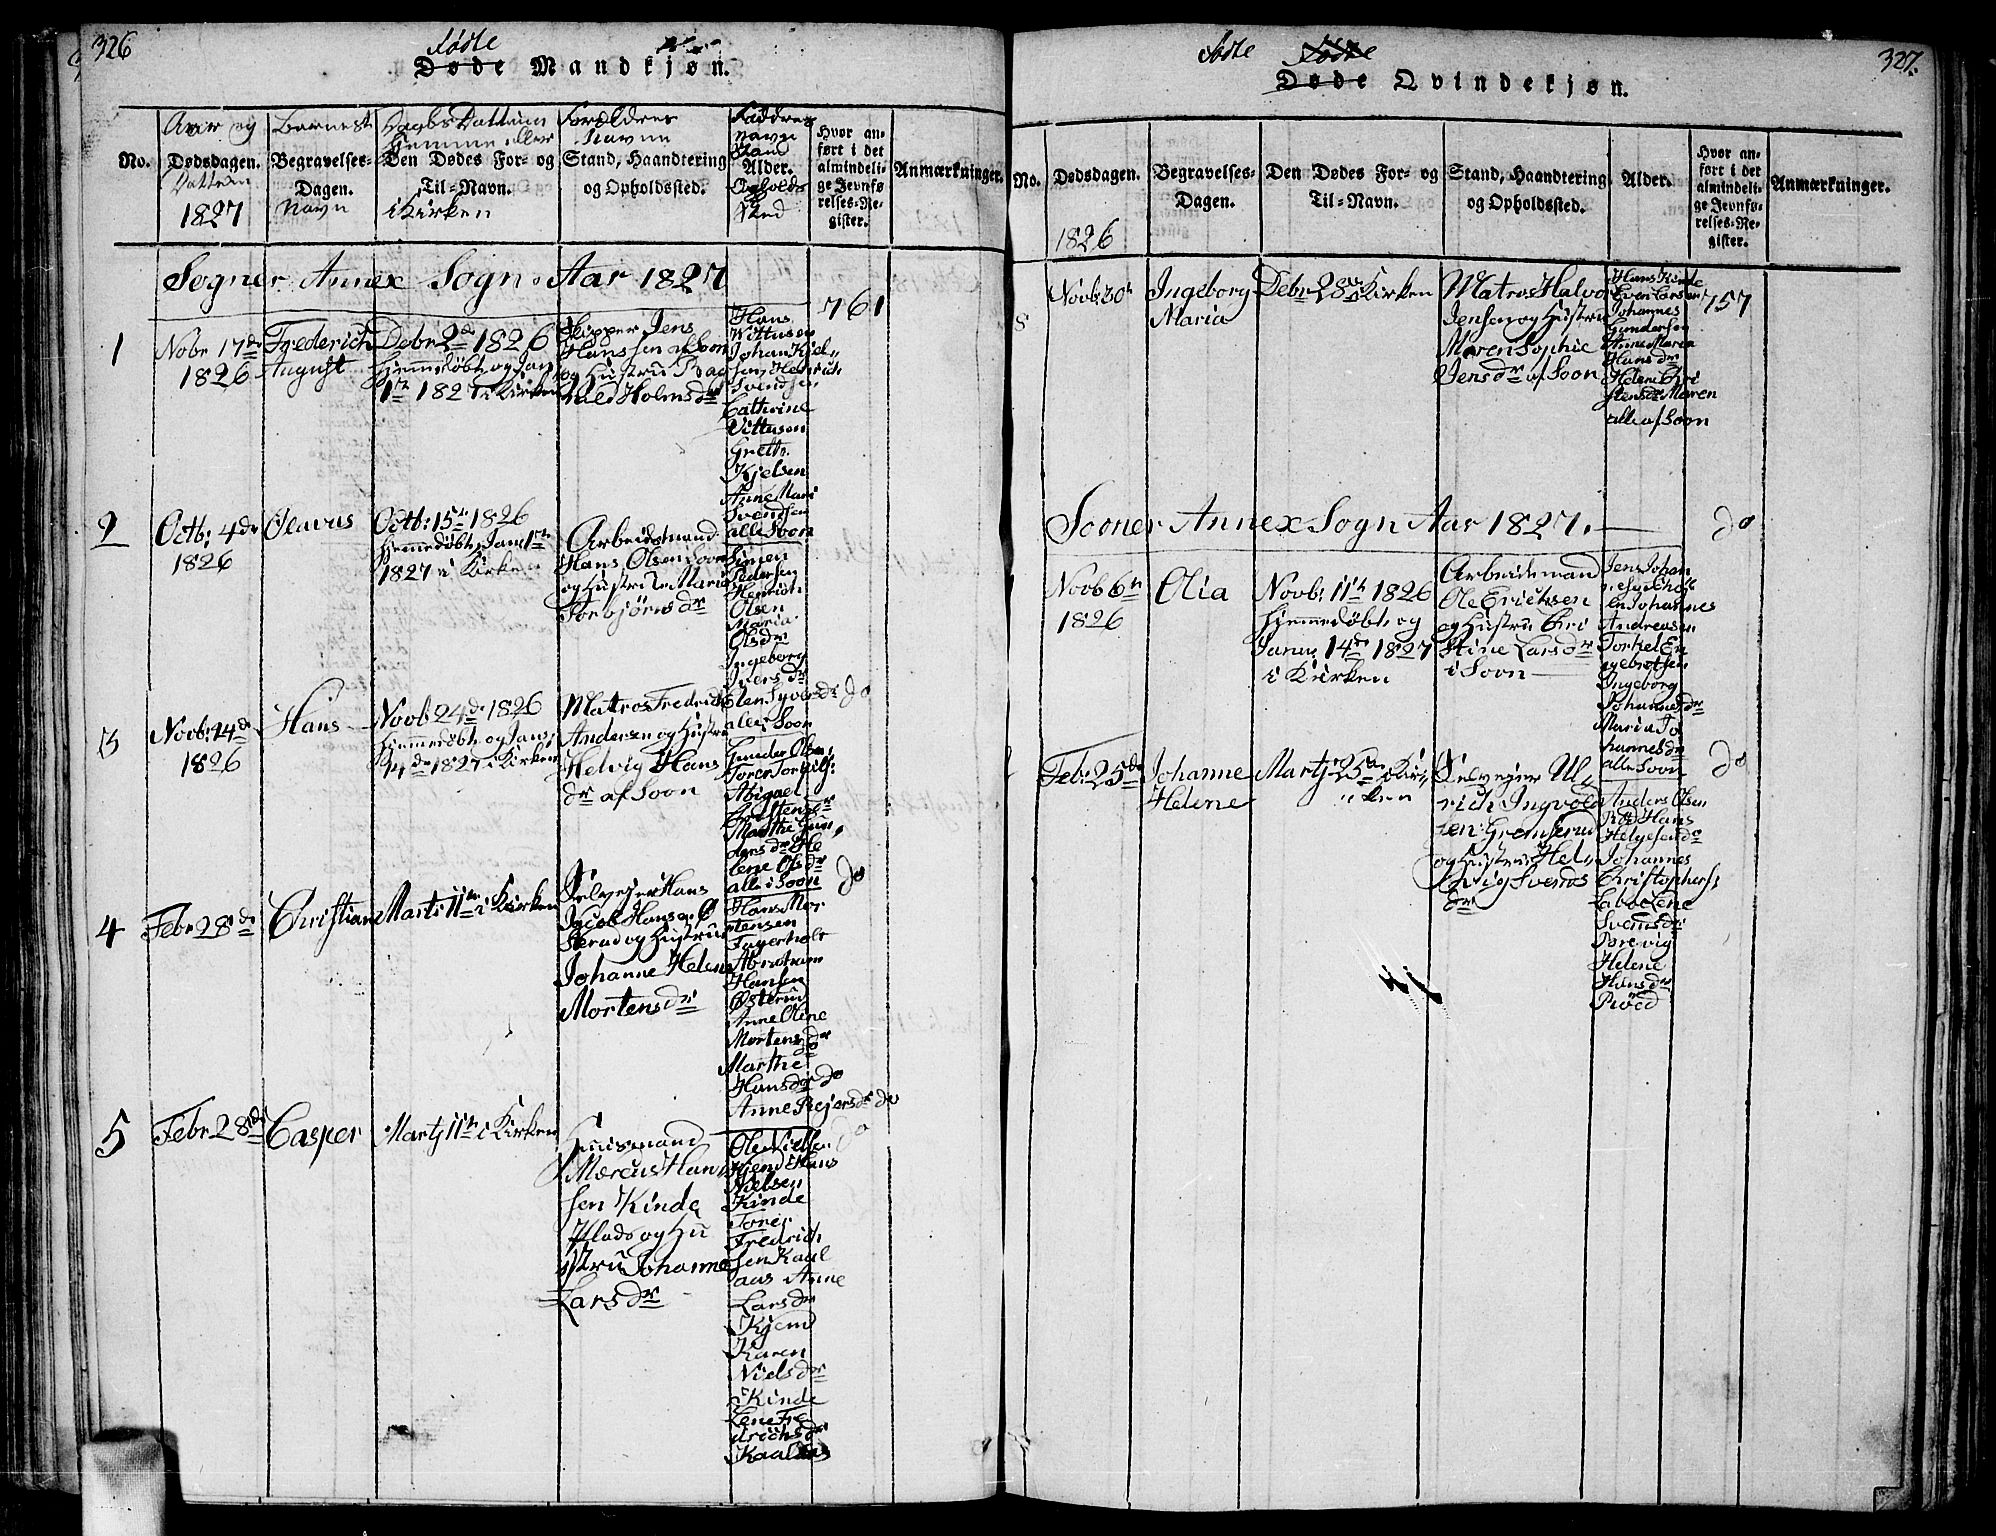 326
Fødte
Døde Mandkjøn.
Aar og
Dødsdagen.
Dattum
1827
Barnets
Begravelses-
Dagen.
Navn
Daabs Dattum
Hjemme eller
Den Dødes For- og
Til-Navn.
i Kirken
Forældres
Navne
Stand, Haandtering
og Opholdssted.
Faddres
Navn
Stand
Alder.
Opholds
Sted
Hvor an-
ført i det
almindeli-
ge Jevnfø-
relses-Re-
gister.
Anmærkninger.
No.
Sogner Annex Sogn Aar 1827
761
1
Nobr 17de
1826
Frederich
August
Debr 2de 1826
Hjemmedøbt og Jan
1te 1827 i Kirken
Skipper Jens
Hanssen af Soon
og Hustru Rag
nild Holmsdr
Hans
Wittusen
Johan Kjel-
sen Henrich
Svendsen
Cathrine
Vittusen
Grethe
Kjelsen
Anne Mari
Svendsen
alle Soon
2
Octb: 4de
1826
Olavus
Octb: 15de 1826
Hjemmedøbt, Jan 1te
1827 i Kirken
Arbeidsmand
Hans Olsen Soon
og Hustru Maria
Torbjørnsdr
Simen
Pedersen
Henrich
Olsen
Maria
Olsdr
Ingeborg
Iversdr
alle i Soon
3
Novb: 14de
1826
Hans
Novb 24de 1826
Hjemmedøbt og Jan
14de 1827 i Kirken
Matros Fredrich
Andersen og Hustru
Helvig Hans
dr af Soon
do
Gunder Olsen
Abigael
Marthe Gun
dersdr He
lene Olsdr
alle i Soon
4
Febr 28de
Christian
Marts 11te i Kirken
Selvejer Hans
Jacob Hansen Ø
sterud og Hustru
Johanne Helene
Mortensdr
do
Hans Mor
tensen
Fagerholt
Abraham
Hansen
Østerud
Anne Oline
Mortensdr
do
Marthe
Hansdr do
Anne Rejersdr do
5
Febr 28de
Casper
Martj 11te i Kirken
Huusmand
Marcus Han
sen Kinde
Plads og Hu
stru Johanne
Larsdr
do
Ole Nielsen
Kjend Hans
Nielsen
Kinde
Toner
Fredrich
sen Kaal
aas Anne
Larsdr
Kjend
Karen
Nielsdr
Kinde
Lene Fre
drichsdr
Kaalaas
327.
Fødte Fødte
Døde Qvindekjøn.
No.
Dødsdagen.
1826
Begravelses-
Dagen.
Den Dødes For- og
Til-Navn.
Stand, Haandtering
og Opholdssted.
Alder.
Hvor an-
ført i det
almindeli-
ge Jevnfø-
relses-Re-
gister.
Anmærkninger.
8
Novb: 30te
Ingeborg
Maria
Debr 28de i Kirken
Matros Halvor
Jensen og Hustru
Maren Sophie
Jensdr af Soon
Hans Kinde
Even Larsen
Johannes
Gundersen
Anne Maria
Hansdr
Helene Chri
stensdr Maren
alle af Soon
757
Sooner Annex Sogn Aar 1827.
do
Novb 6te
1826
Olia
Novb: 11te 1826
Hjemmedøbt, og
Janu: 14de 1827
i Kirken
Arbeidsmand
Ole Erichsen
og Hustru Chri
stine Larsdr
i Soon
Jens Johan
Johannes
Andreasen
Torkel En
gebretsen
Ingeborg
Johannesdr
Maria Jo
hannesdr
alle Soon
Feb: 25de
Johanne
Helene
Martj 25de i Kir-
ken
Selvejer Ul-
rich Ingvold
sen Gremserud
og Hustru Hel-
vig Svends
dr
do
Anders Olsen
Røed Hans
Helgesen
Johannes
Christophers:
Labo Lene
Svendsdr
Brevig
Helene
Hansdr
Røed